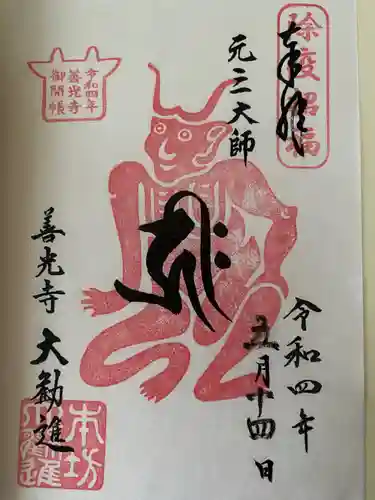 除疫招福
奉拝
元三大師
令和四年
善光寺
御開帳
令和四年
五月十四日
善光寺
大勧進
本坊